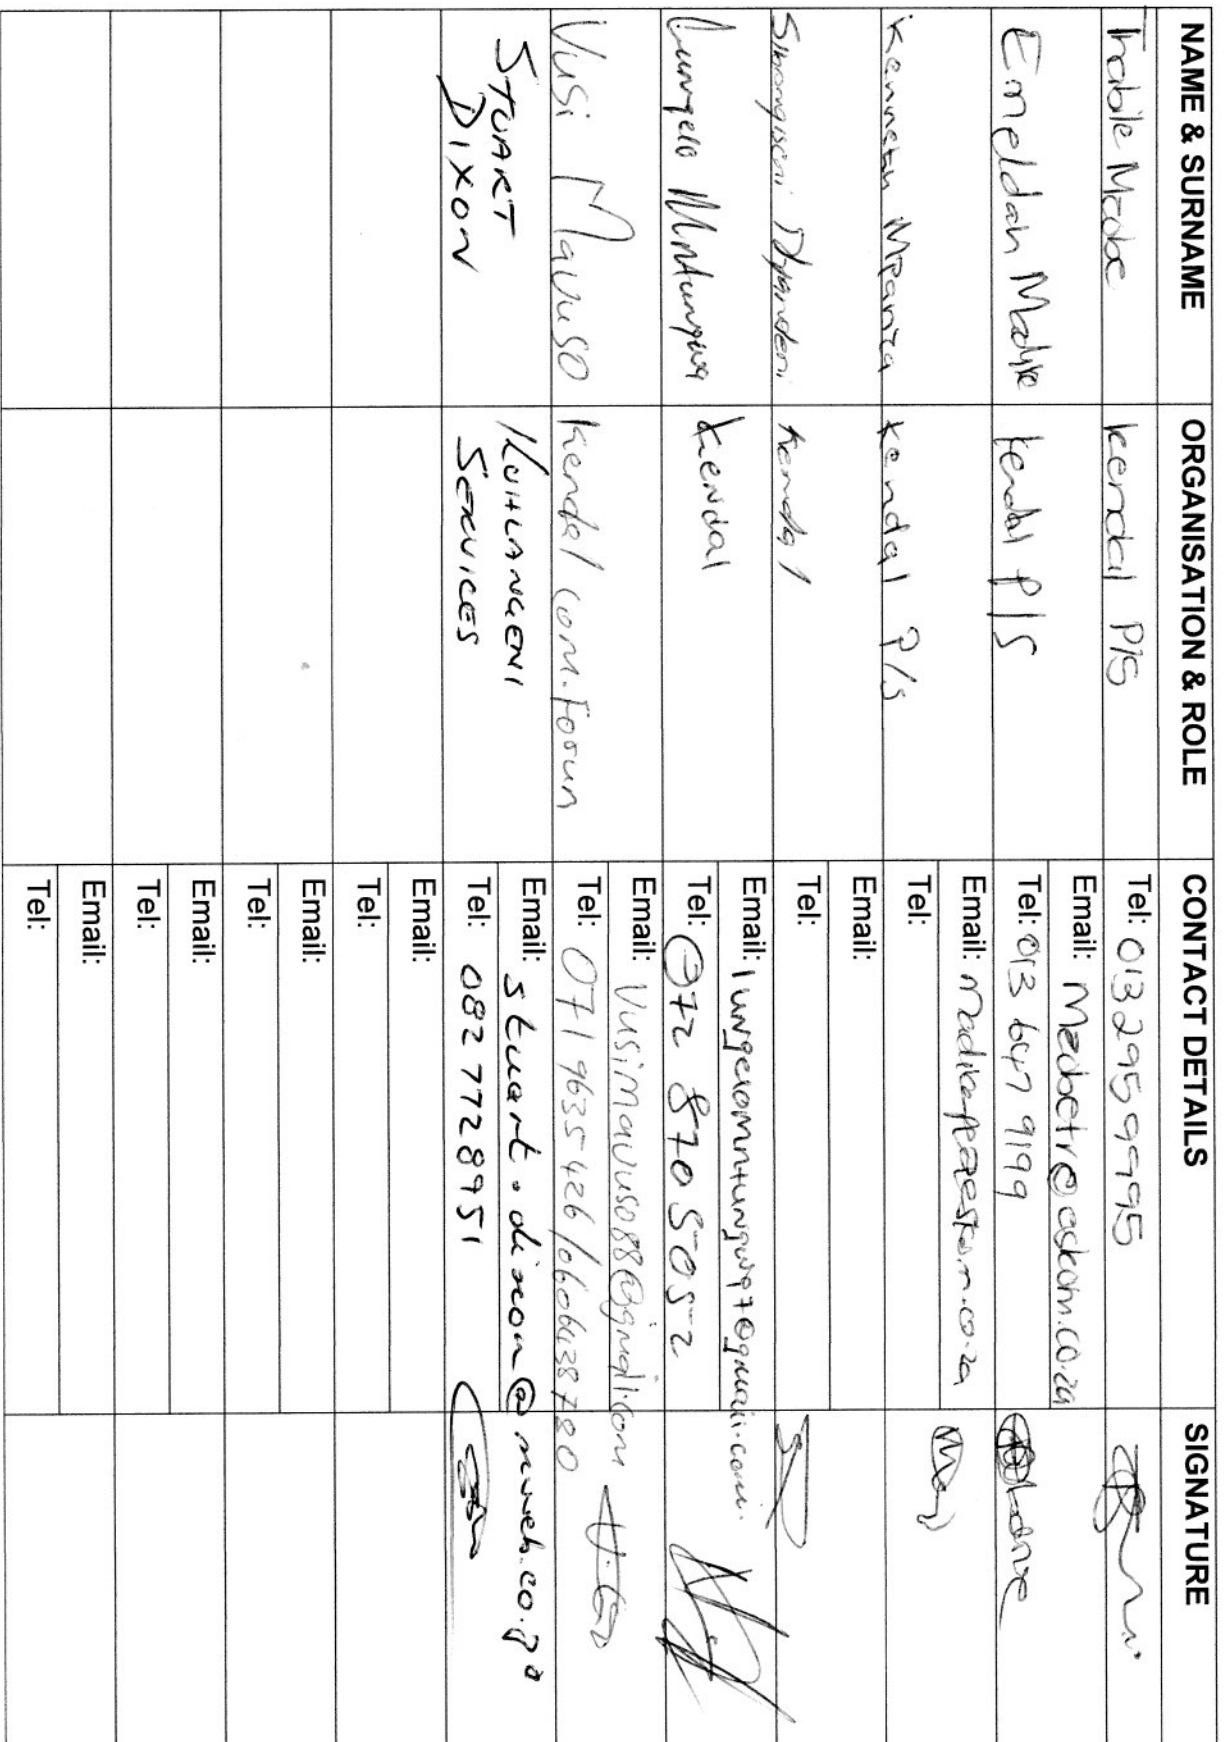 NAME & SURNAME ORGANISATION & ROLE CONTACT DETAILS SIGNATURE
Thabile Mzobe Kendal P/S Tel: 013 295 9995
Email: Mzobetr@eskom.co.za
Emeldah Madike Kendal P/S Tel: 013 647 9199
Email: Madikepe@eskom.co.za
Kenneth Mpanza Kendal P/S Tel:
Email:
Kendal Tel:
Email: lungelomntungwa7@gmail.com.
Lungelo Mntungwa Kendal Tel: 072 870 5052
Email: VusiMavuso88@gmail.com
Vusi Mavuso Kendal Com. Forum Tel: 071 9635426/0606438780
Email: stuart.dixon@mweb.co.za
STUART DIXON KUHLANGENI SERVICES Tel: 082 7728951
Email:
Tel:
Email:
Tel:
Email:
Tel:
Email:
Tel: